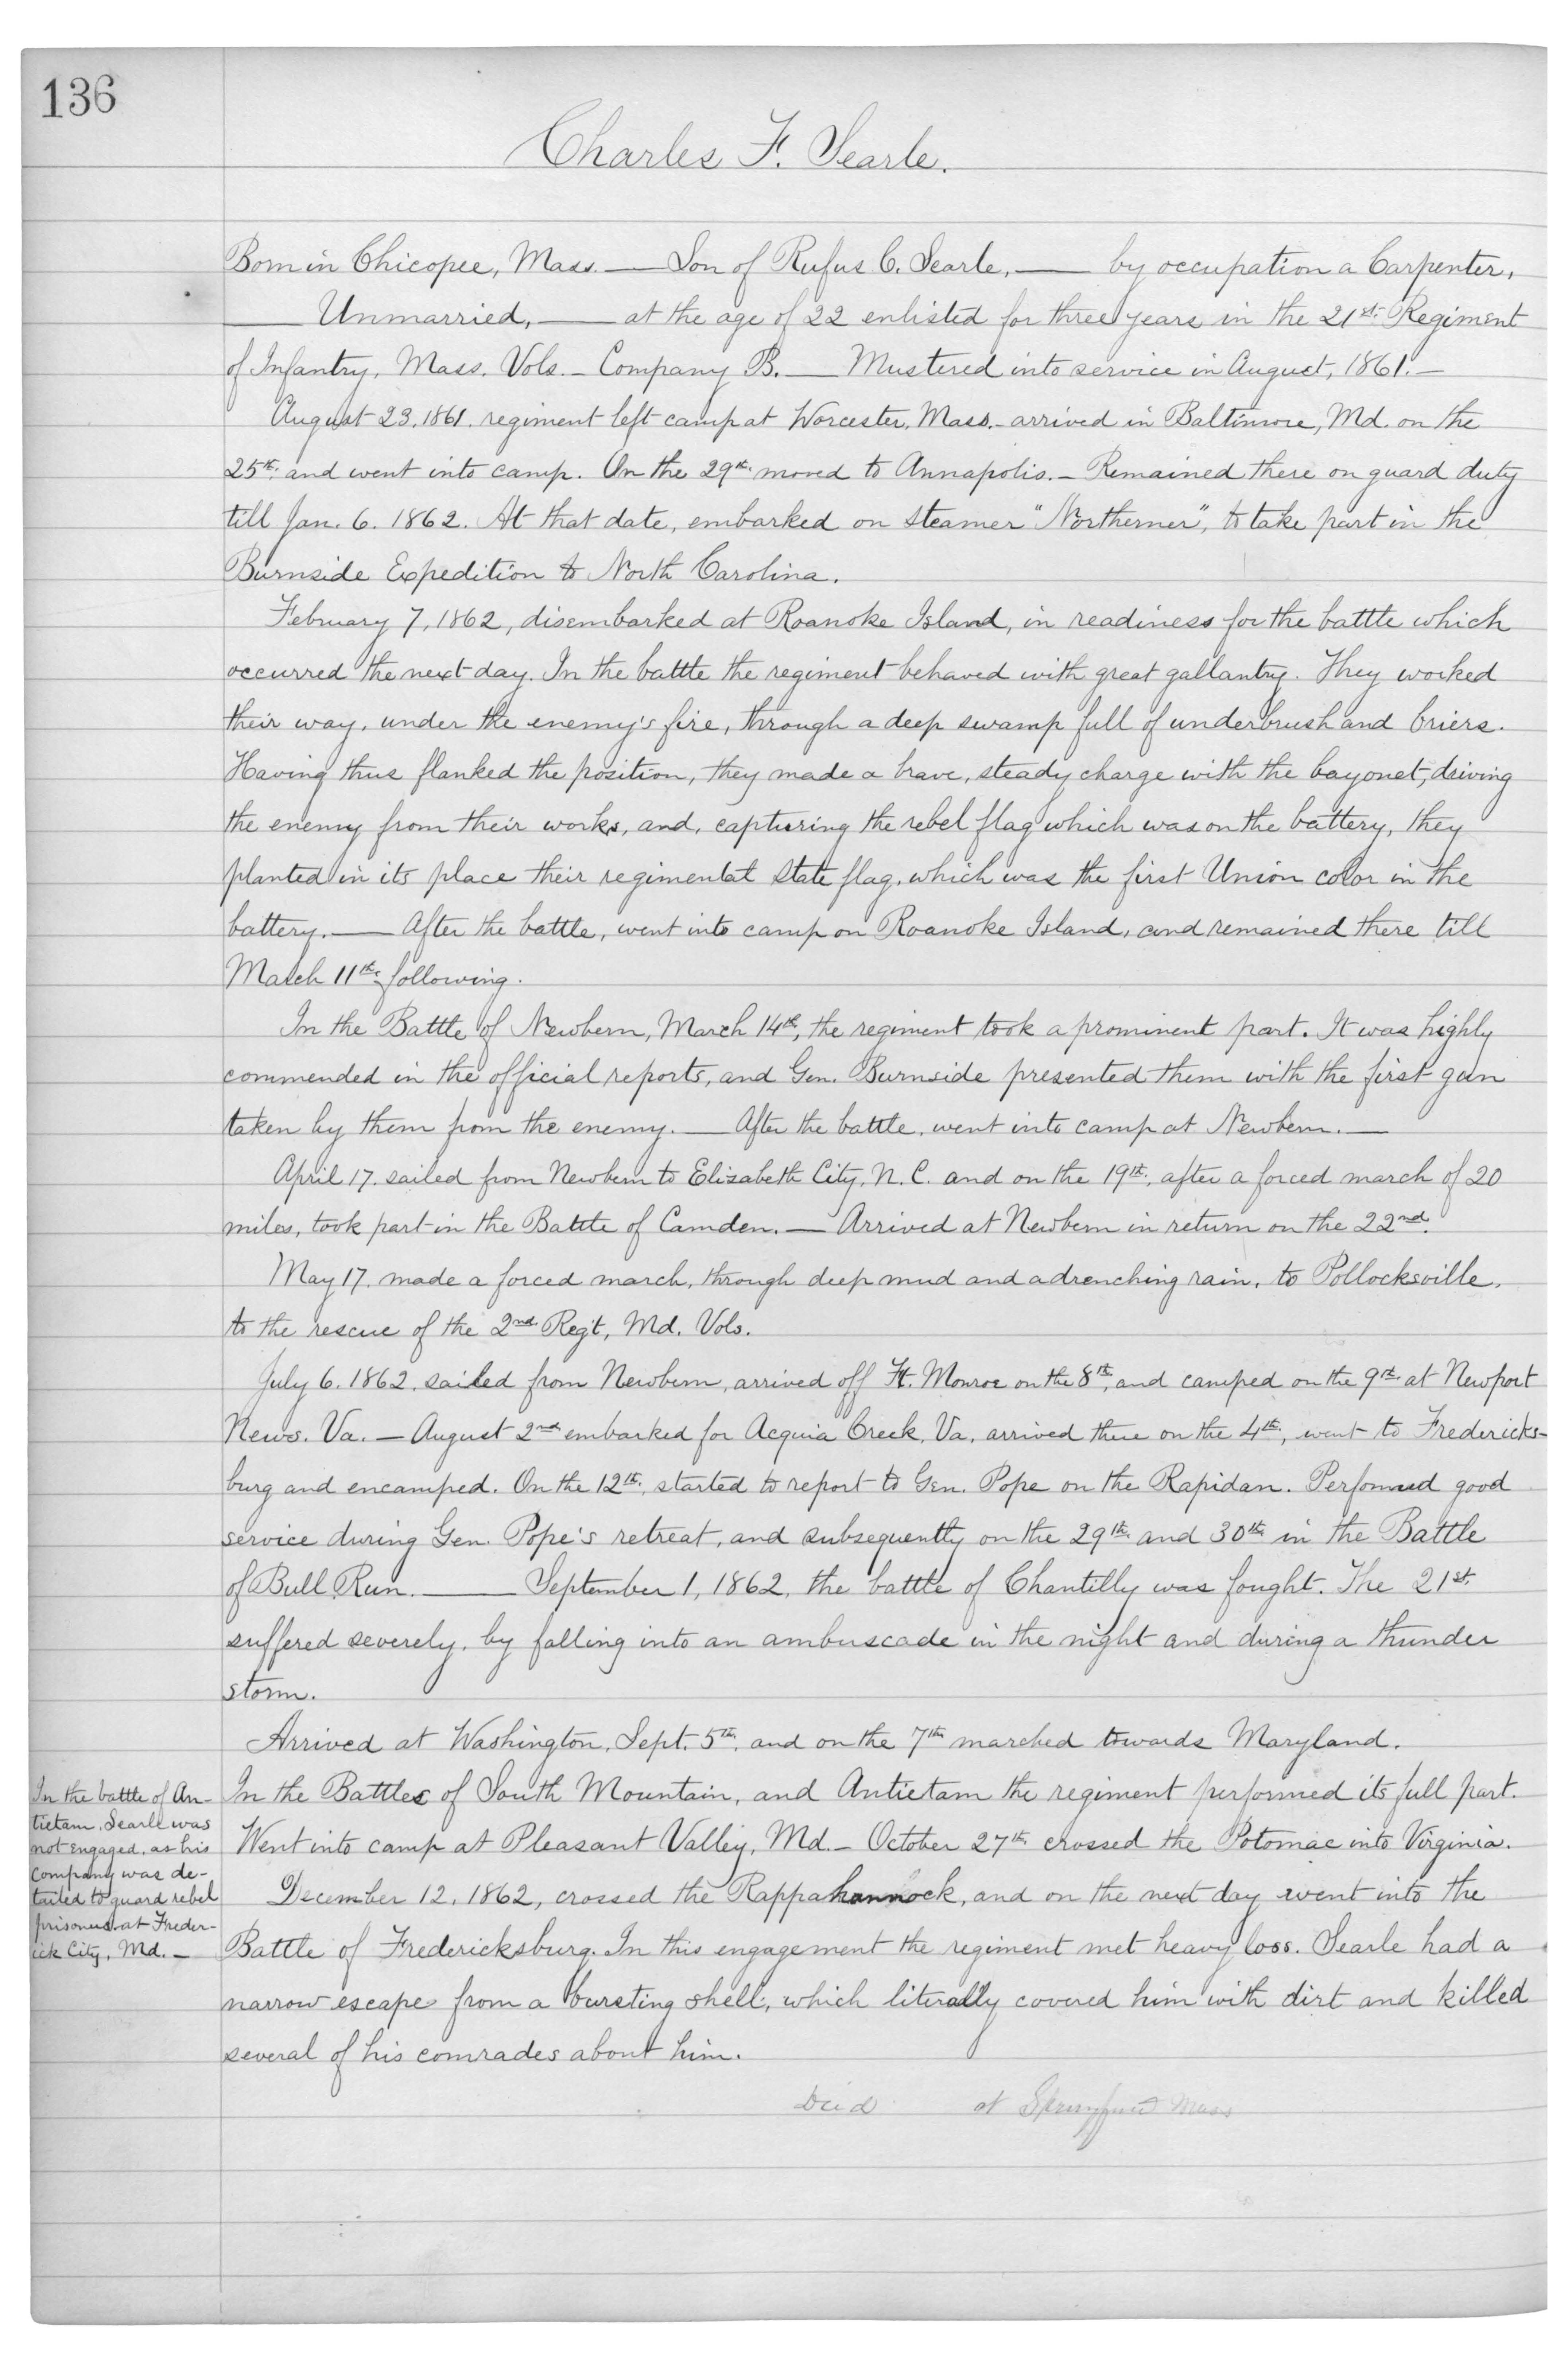 136
Charles F. Searle.
Born in Chicopee, Mass. — Son of Rufus C. Searle, — by occupation a Carpenter,
— Unmarried, — at the age of 22 enlisted for three years in the 21st. Regiment
of Infantry, Mass. Vols. – Company B. — Mustered into service in August, 1861. –
August 23, 1861. regiment left camp at Worcester, Mass. – arrived in Baltimore, Md. on the
25th. and went into camp. On the 29th. moved to Annapolis. – Remained there on guard duty
till Jan. 6. 1862. At that date, embarked on steamer "Northerner", to take part in the
Burnside Expedition to North Carolina.
February 7, 1862, disembarked at Roanoke Island, in readiness for the battle which
occurred the next day. In the battle the regiment behaved with great gallantry. They worked
their way, under the enemy's fire, through a deep swamp full of underbrush and briers.
Having thus flanked the position, they made a brave, steady charge with the bayonet, driving
the enemy from their works, and, capturing the rebel flag which was on the battery, they
planted in its place their regimental State flag, which was the first Union color in the
battery. — After the battle, went into camp on Roanoke Island, and remained there till
March 11th. following.
In the Battle of Newbern, March 14th, the regiment took a prominent part. It was highly
commended in the official reports, and Gen. Burnside presented them with the first gun
taken by them from the enemy. — After the battle, went into camp at Newbern. —
April 17. sailed from Newbern to Elizabeth City, N.C. and on the 19th., after a forced march of 20
miles, took part in the Battle of Camden. — Arrived at Newbern in return on the 22nd.
May 17. made a forced march, through deep mud and a drenching rain, to Pollocksville,
to the rescue of the 2nd. Reg't, Md. Vols.
July 6. 1862. sailed from Newbern, arrived off Ft. Monroe on the 8th, and camped on the 9th. at Newport
News. Va. – August 2nd embarked for Acquia Creek, Va. arrived there on the 4th., went to Fredericks-
burg and encamped. On the 12th., started to report to Gen. Pope on the Rapidan. Performed good
service during Gen. Pope's retreat, and subsequently on the 29th. and 30th. in the Battle
of Bull Run. — September 1, 1862, the battle of Chantilly was fought. The 21st.
suffered severely, by falling into an ambuscade in the night and during a thunder
storm.
Arrived at Washington, Sept. 5th. and on the 7th marched towards Maryland.
In the Battles of South Mountain, and Antietam the regiment performed its full part.
Went into camp at Pleasant Valley, Md. – October 27th. crossed the Potomac into Virginia.
December 12, 1862, crossed the Rappahannock, and on the next day went into the
Battle of Fredericksburg. In this engagement the regiment met heavy loss. Searle had a
narrow escape from a bursting shell, which literally covered him with dirt and killed
several of his comrades about him.
In the battle of An-
tietam, Searle was
not engaged, as his
Company was de-
tailed to guard rebel
prisoners at Freder-
ick City, Md. –
Died at Springfield Mass